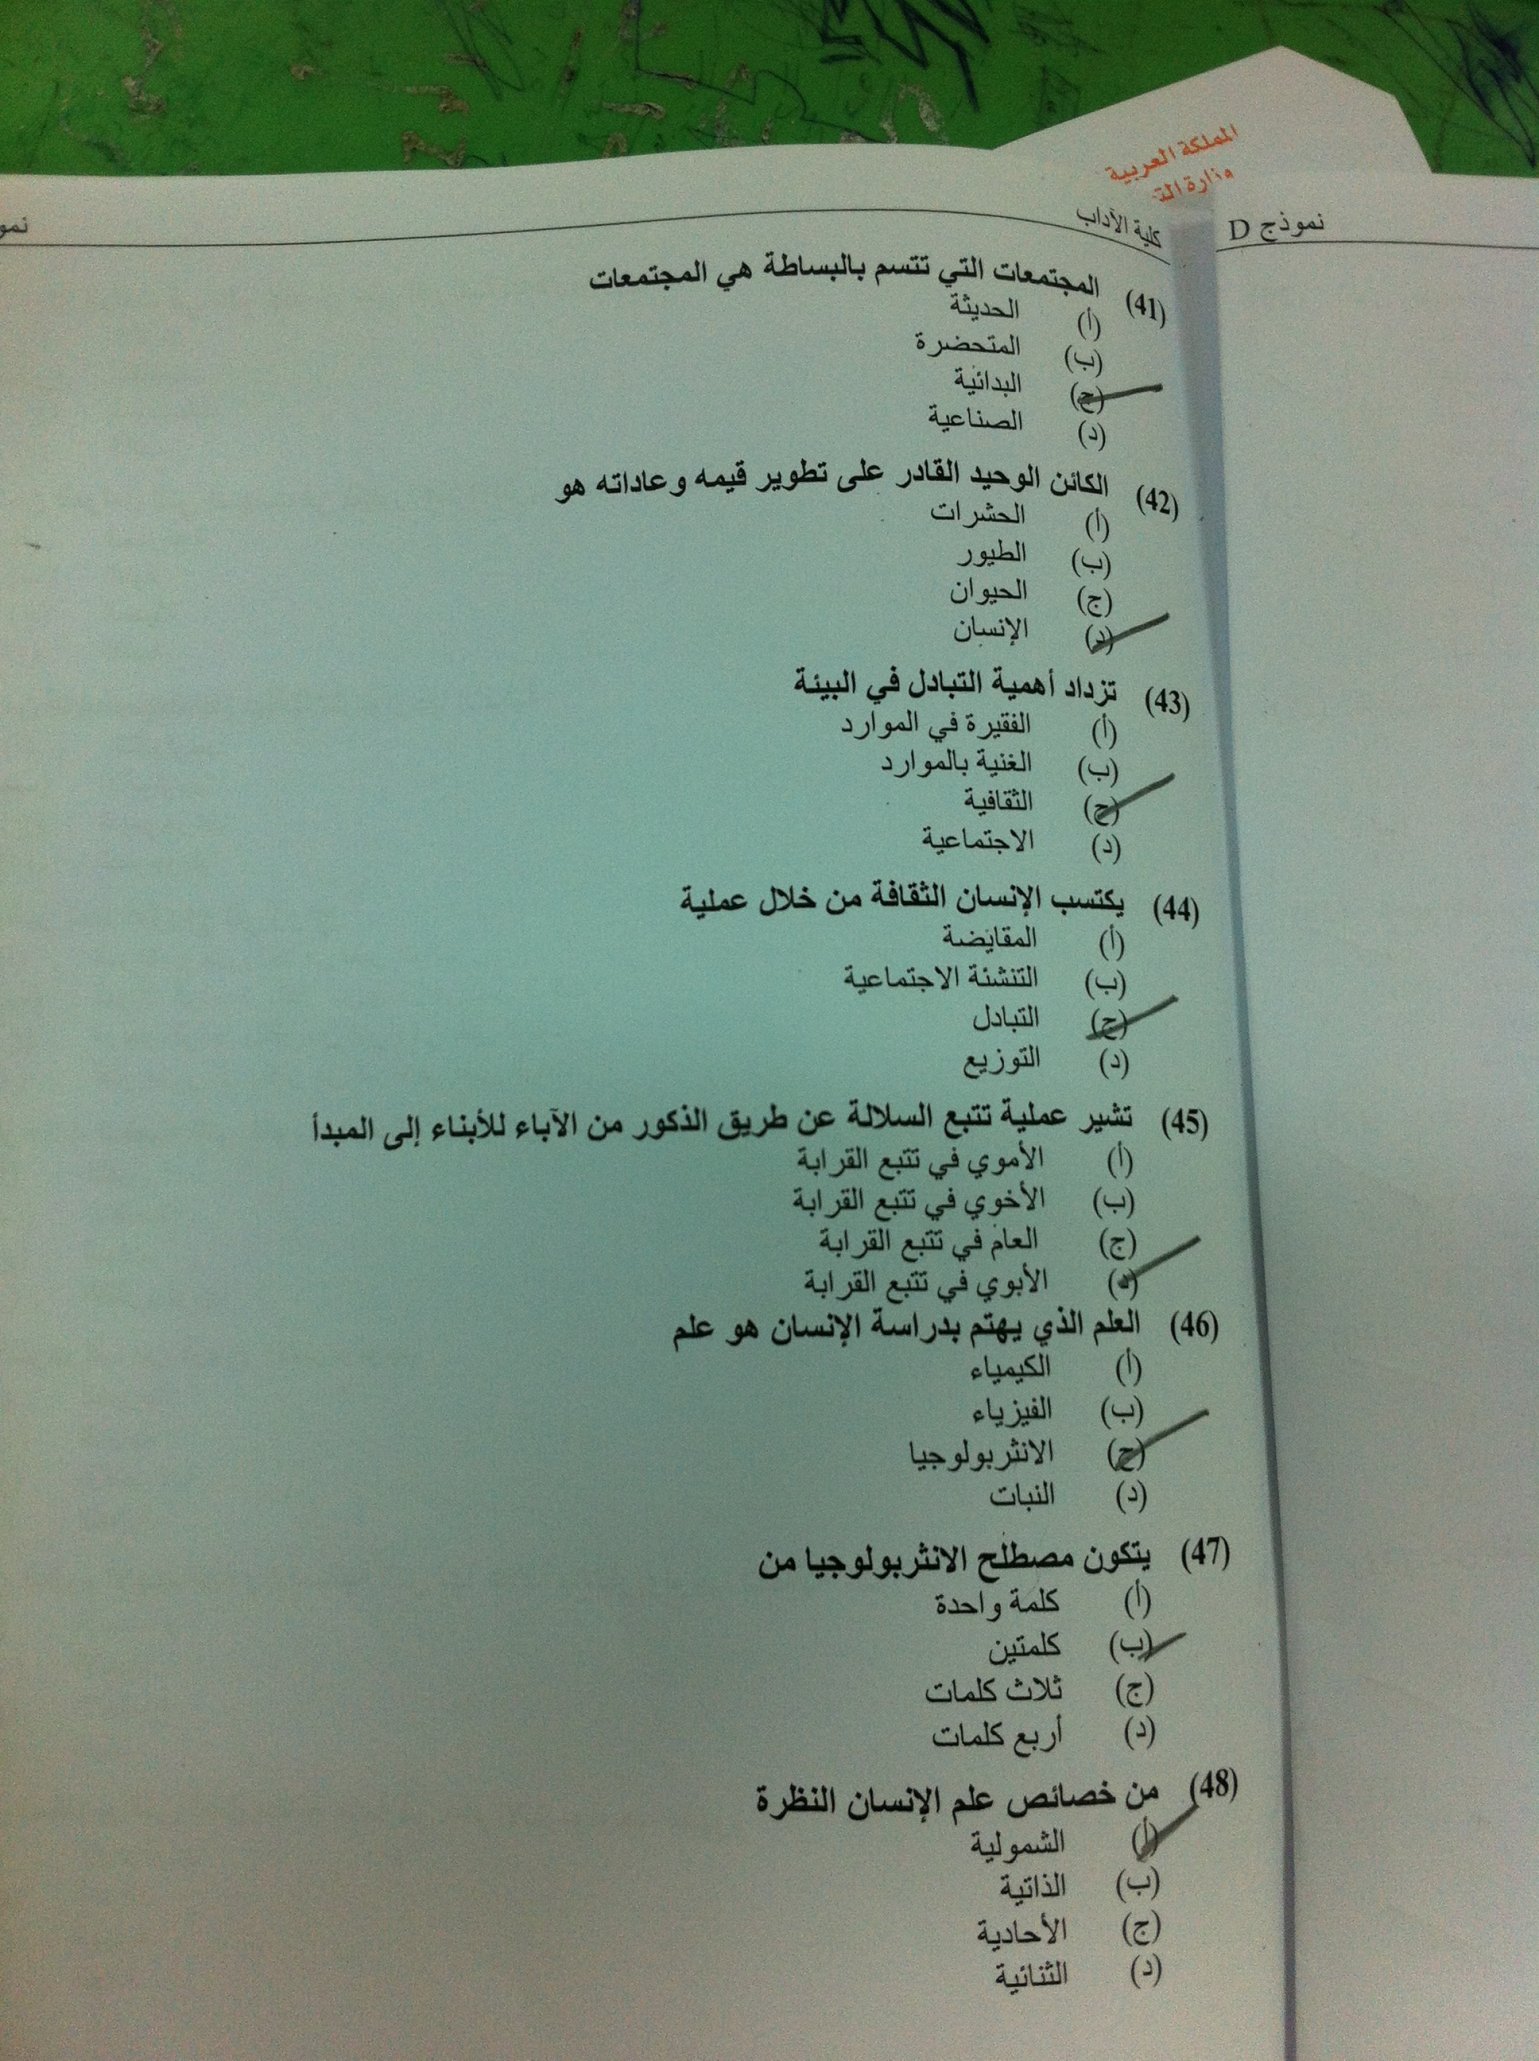 المملكة العربية
وزارة
كلية الآداب
نموذج D
(41) المجتمعات التي تتسم بالبساطة هي المجتمعات
(أ) الحديثة
(ب) المتحضرة
(ج) البدائية
(د) الصناعية
(42) الكائن الوحيد القادر على تطوير قيمه وعاداته هو
(أ) الحشرات
(ب) الطيور
(ج) الحيوان
(د) الإنسان
(43) تزداد أهمية التبادل في البيئة
(أ) الفقيرة في الموارد
(ب) الغنية بالموارد
(ج) الثقافية
(د) الاجتماعية
(44) يكتسب الإنسان الثقافة من خلال عملية
(أ) المقايضة
(ب) التنشئة الاجتماعية
(ج) التبادل
(د) التوزيع
(45) تشير عملية تتبع السلالة عن طريق الذكور من الآباء للأبناء إلى المبدأ
(أ) الأموي في تتبع القرابة
(ب) الأخوي في تتبع القرابة
(ج) العام في تتبع القرابة
(د) الأبوي في تتبع القرابة
(46) العلم الذي يهتم بدراسة الإنسان هو علم
(أ) الكيمياء
(ب) الفيزياء
(ج) الانثربولوجيا
(د) النبات
(47) يتكون مصطلح الانثربولوجيا من
(أ) كلمة واحدة
(ب) كلمتين
(ج) ثلاث كلمات
(د) أربع كلمات
(48) من خصائص علم الإنسان النظرة
(أ) الشمولية
(ب) الذاتية
(ج) الأحادية
(د) الثنائية